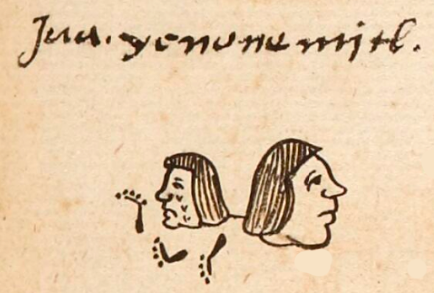 Juā. yenonemitl.